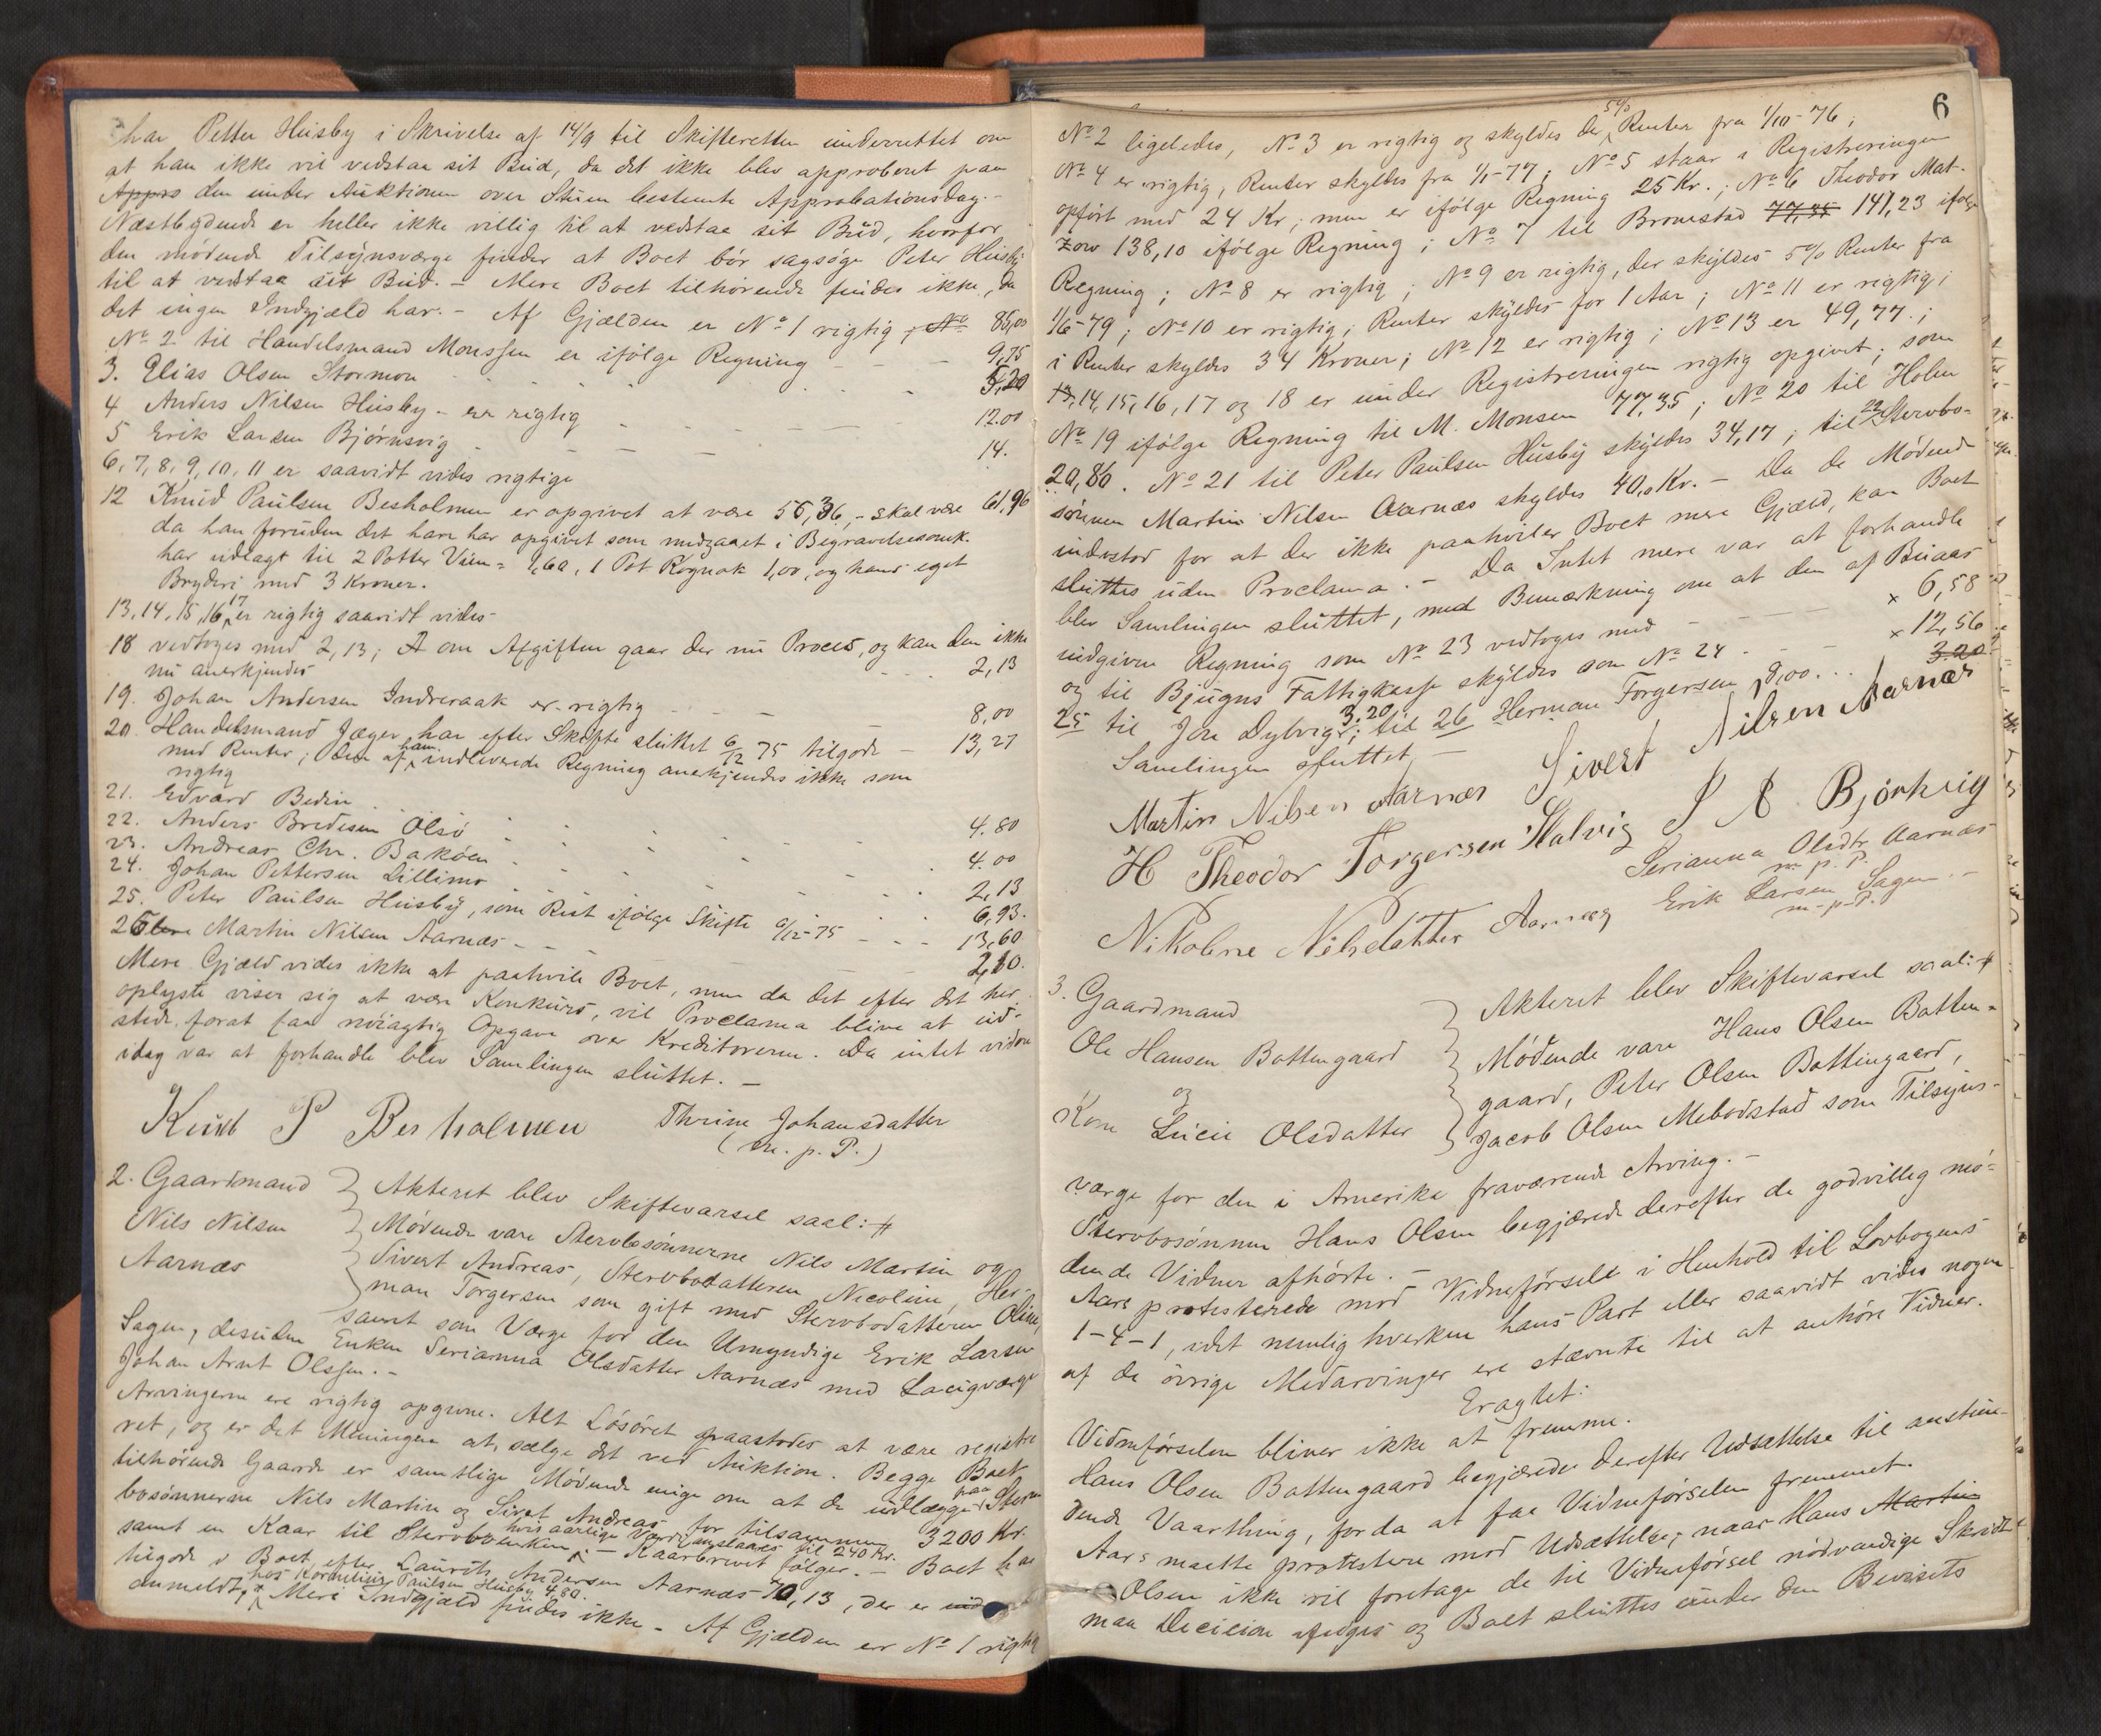 har Petter Husby i Skrivelse af 14/9 til Skifteretten underrettet om
at han ikke vil vedstaa sit Bud, da det ikke blev approberet paa
Appro den under Auktionen over Stuen bestemte Approbationsdag.-
Næstbydende er heller ikke villig til at vedstaa sit Bud, hvorfor
den mødende Tilsynsværge finder at Boet bør sagsøge Peter Husby
til at vedstaa sit Bud. - Mere Boet tilhørende findes ikke, da
det ingen Indgjæld har. - Af Gjælden er No 1 rigtig, No 85,00
No 2 til Handelsmand Monssen er ifølge Regning - - 9,75
3. Elias Olsen Stormon 5,20
4 Anders Nilsen Husby - er rigtig 12.00
5 Erik Larsen Bjørnsvig - - - - 14.
6, 7, 8, 9, 10, 11 er saavidt vides rigtige
12 Knud Paulsen Besholmen er opgivet at være 55,36,- skal være 61,96
da han foruden det han har opgivet som medgaaet i Begravelsesomk.
har udlagt til 2 Potter Viin = 1,60, 1 Pot Kognak 1,00, og hans eget
Bryderi med 3 Kroner.
13, 14, 15, 16, 17 er rigtig saavidt vides
18 vedtoges med 2,13; A om Afgiften gaar der nu Proces, og kan den ikke
nu anerkjendes - - - 2,13
19. Johan Andersen Indreraak er rigtig - - - 8,00
20. Handelsmand Jæger har efter Skifte sluttet 6/12 75 tilgode - 13,27
med Renter; den af ham indleverede Regning anerkjendes ikke som
rigtig
21. Edvard Bedin 4.80
22. Anders Bredesen Olsø 4.00
23. Andreas Chr. Bakøen 2,13
24. Johan Pettersen Lillimo 6,93.
25. Peter Paulsen Husby, som Rest ifølge Skifte 6/12-75 - - - 13,60
26 Martin Nilsen Aarnæs - - - 2,10.
Mere Gjæld vides ikke at paahvile Boet, men da det efter det her
oplyste viser sig at være Konkurs, vil Proclama blive at ud-
stede forat faa nøiagtig Opgave over Kreditorerne. Da intet videre
idag var at forhandle blev Samlingen sluttet. -
Knud P Besholmen Thrine Johansdatter
(m. p. P.)
2. Gaardmand
Nils Nilsen
Aarnæs
Akteret blev Skiftevarsel saal: #
Mødende vare Stervbosønnerne Nils Martin og
Sivert Andreas, Stervbodatteren Nicoline, Her-
man Torgersen som gift med Stervbodatteren Oline,
samt som Værge for den Umyndige Erik Larsen
Sagen, desuden Enken Serianna Olsdatter Aarnæs med Laugværge
Johan Arnt Olssen. -
Arvingerne ere rigtig opgivne. Alt Løsøret paastodes at være registre
ret, og er det Meningen at sælge det ved Auktion. Begge Boet
tilhørende Gaarde er samtlige Mødende enige om at de udlægges paa Sterv
bosønnerne Nils Martin og Sivert Andreas for tilsammen 3200 Kr.
samt en Kaar til Stervboenken, hvis aarlige Værdi anslaaes til 240 Kr. - Kaarbrevet følger. - Boet har
tilgode i Boet efter Laurits Andersen Aarnæs 70,13, der er
anmeldt, hos Kornelius Paulsen Husby 4,80. Mere Indgjæld findes ikke. - Af Gjælden er No 1 rigtig
6
No 2 ligeledes, No 3 er rigtig og skyldes der 5% Renter fra 1/10-76;
No 4 er rigtig, Renter skyldes fra 1/1-77; No 5 staar i Registreringen
opført med 24 Kr., men er ifølge Regning 25 Kr.; No 6 Theodor Mat-
zow 138,10 ifølge Regning; No 7 til Bromstad 77,35 141,23 ifølge
Regning; No 8 er rigtig; No 9 er rigtig, der skyldes 5% Renter fra
1/6-79; No 10 er rigtig; Renter skyldes for 1 Aar; No 11 er rigtig;
i Renter skyldes 34 Kroner; No 12 er rigtig; No 13 er 49,77.;
13, 14, 15, 16, 17 og 18 er under Registreringen rigtig opgivet; som
No 19 ifølge Regning til M. Monsen 77,35; No 20 til Holm
20,80. No 21 til Peter Paulsen Husby skyldes 34,17; til 22 Stervbo-
sønnen Martin Nilsen Aarnæs skyldes 40,0 Kr. - Da de Mødende
inderstod for at der ikke paahviler Boet mere Gjæld, kan Boet
sluttes uden Proclama. - Da Intet mere var at forhandle
blev Samlingen sluttet, med Bemærkning om at den af Buaas
indgivne Regning som No 23 vedtoges med - - - x 6,58
og til Bjugns Fattigkasse skyldes som No 24 - - - x 12,56
25 til Jon Dybvig 3.20; til 26 Herman Torgersen 8,00... 3.20
Samlingen sluttet -
Martin Nilsen Aarnæs Sivert Nilsen Aarnæs
H Theodor Torgersen Halvig J A Bjørnvig
Serianna Olsdtr Aarnæs
m. p. P.
Nikoline Nilsdatter Aarnæs Erik Larsen Sagen. -
m. p. P.
3. Gaardmand
Ole Hansen Bottengaard
og
Kone Lucie Olsdatter
Akteret blev Skiftevarsel saal: #
Mødende vare Hans Olsen Botten-
gaard, Peter Olsen Bottengaard,
Jacob Olsen Mebodstad som Tilsyns-
værge for den i Amerika fraværende Arving. -
Stervbosønnen Hans Olsen begjærede derefter de godvillig mø-
dende Vidner afhørte. -
Aars protesterede mod Vidneførsel i Henhold til Lovbogens
1-4-1, idet nemlig hverken hans Part eller saavidt vides nogen
af de øvrige Medarvinger ere stævnte til at anhøre Vidner.
Eragtet:
Vidneførselen bliver ikke at fremme.
Hans Olsen Bottengaard begjærede derefter Udsættelse til anstun-
dende Vaarthing, for da at faa Vidneførselen fremmet.
Aars maatte protestere mod Udsættelse; naar Hans Martin
Olsen ikke vil foretage de til Vidneførsel nødvændige Skridt
maa Decision afsiges og Boet sluttes under den Bevisets